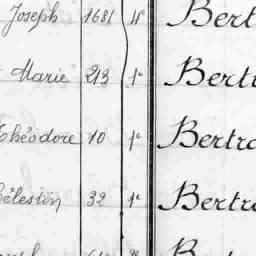 Joseph 1681 4e Bert
Marie 213 1e Bertr
Théodore 10 1e Bertra
élestin 32 1e Bertra